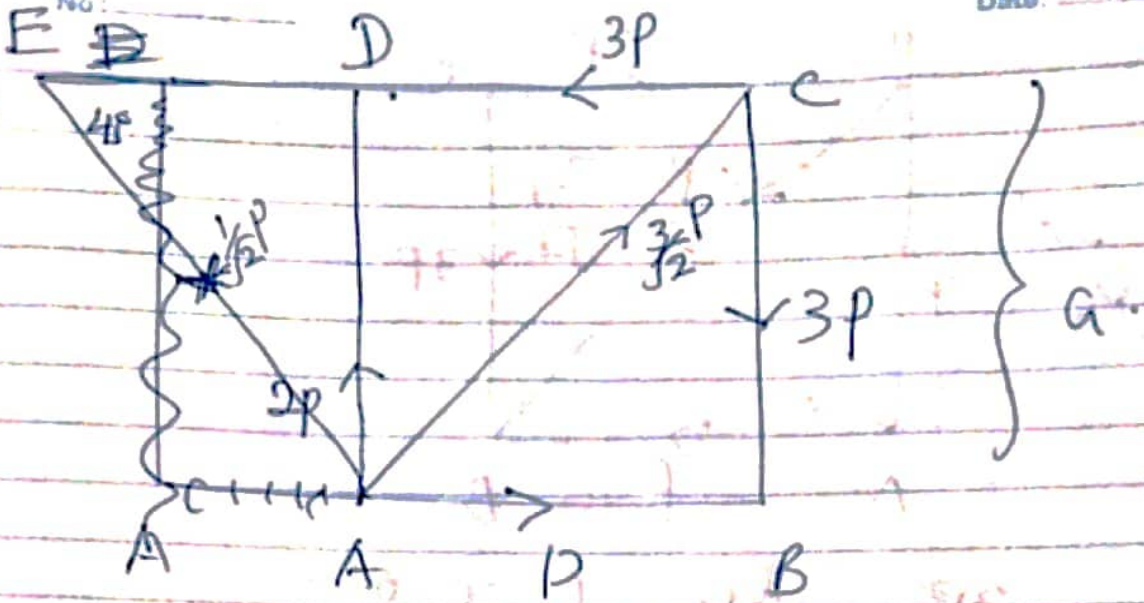 No:
Date:
E D 3P C
4P
1/√2 P
3/√2 P
3P G
2P
A A P B